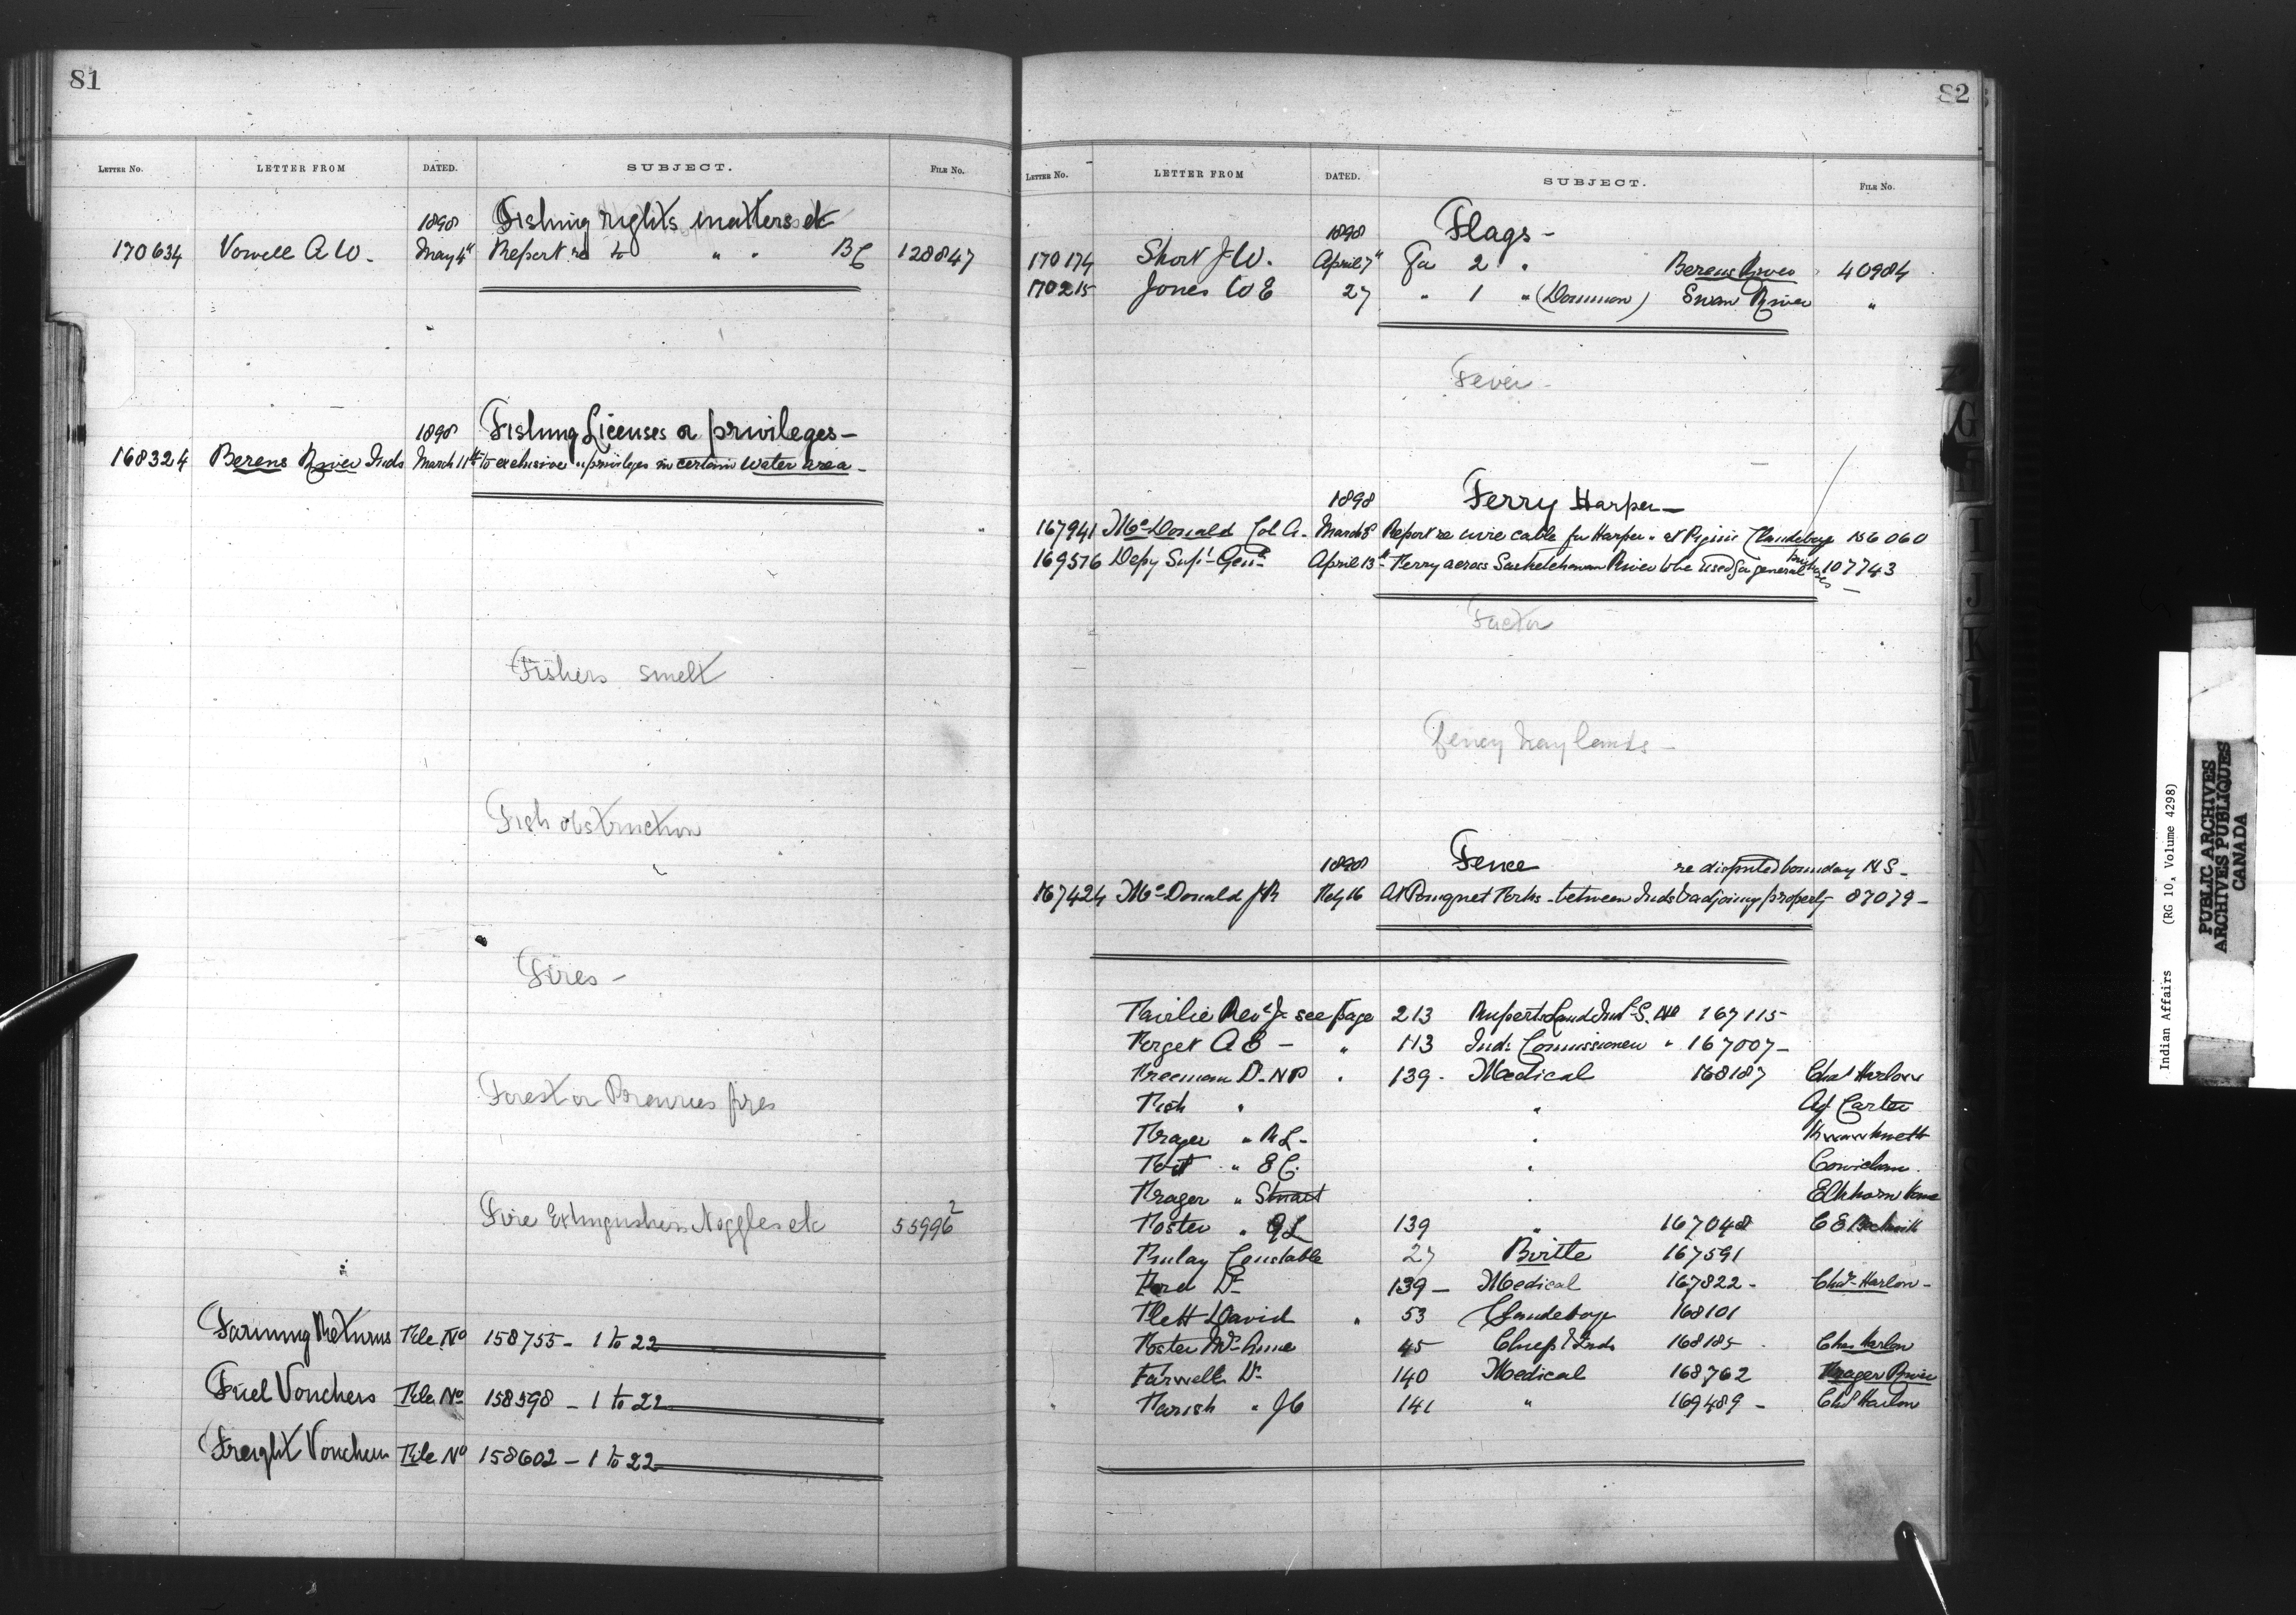 81
LETTER NO. LETTER FROM DATED. SUBJECT. FILE NO.
1898 Fishing rights matters etc
170634 Vowell A W. May 4" Report re to " " BC 128847
1898 Fishing Licenses or privileges-
168324 Berens River Inds March 11th to exclusive " privileges in certain water area-
Fishers smelt
Fish obstruction
Fires-
Forest or Prairies fires
Fire Extinguishers Noggles etc 55996²
Farming Returns File No 158755- 1 to 22
Fuel Vouchers File No 158598 - 1 to 22
Freight Vouchers File No 158602 - 1 to 22
82
LETTER NO. LETTER FROM DATED. SUBJECT. FILE NO.
1898 Flags-
170174 Short J W. April 7" For 2 " Berens River 40984
170215 Jones W E 27 " 1 " (Dominion) Swan River "
Fever-
1898 Ferry Harper-
167941 McDonald Col A. March 8 Report re wire cable for Harper " at Pigius Clandeboye 156060
169576 Depy Supt Genl April 13th Ferry across Saskatchewan River to be used for general purposes 107743
Factor
Fency hay lands-
1898 Fence re disputed boundary N S-
167424 McDonald J R Feby 16 At Pomquet Forks - between Inds & adjoining property 87079-
Fairlie Revd J- see page 213 Ruperts Land Indl S. No 167115
Forget A E - " 113 Inds Commissioner " 167007-
Freeman Dr N P " 139. Medical 168187 Chas Harlow
Fish " " Agt Carter
Fraser " R L- "
Foot " E C. " Cowichan.
Fraser " Stuart " Elkhorn Home
Foster " G L 139 " 167048 C E Beckwith
Finlay Constable 27 Birtle 167591
Ford Dr 139- Medical 167822- Chas Harlow-
Flett David " 53 Clandeboye 168101
Foster Wm Anne 45 Chiefs & Inds 168185 Chas Harlow
Farwell Dr 140 Medical 168762 Fraser River
Farish " J C 141 " 169489 - Chas Harlow
Indian Affairs (RG 10, Volume 4298)
PUBLIC ARCHIVES
ARCHIVES PUBLIQUES
CANADA
G
I
J
K
L